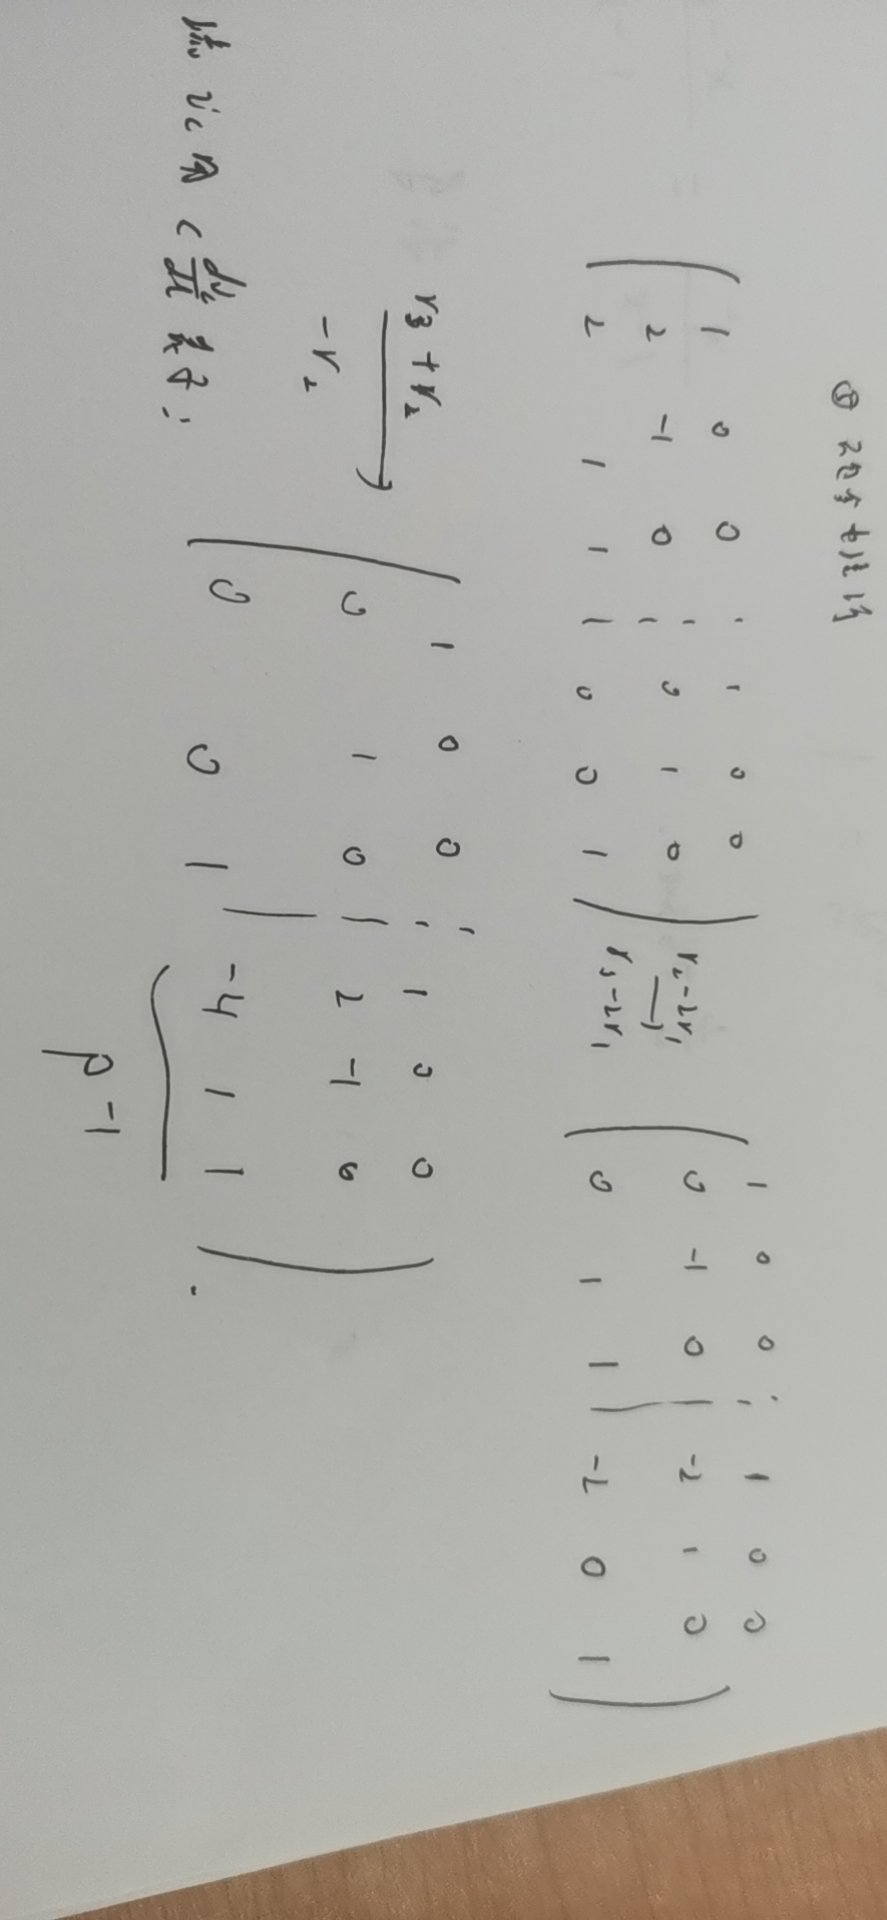 1 0 0 | 1 0 0
2 -1 0 | 0 1 0
2 1 1 | 0 0 1
r₂-2r₁
r₃-2r₁
1 0 0 | 1 0 0
0 -1 0 | -2 1 0
0 1 1 | -2 0 1
r₃+r₂
-r₂
1 0 0 | 1 0 0
0 1 0 | 2 -1 0
0 0 1 | -4 1 1
p⁻¹